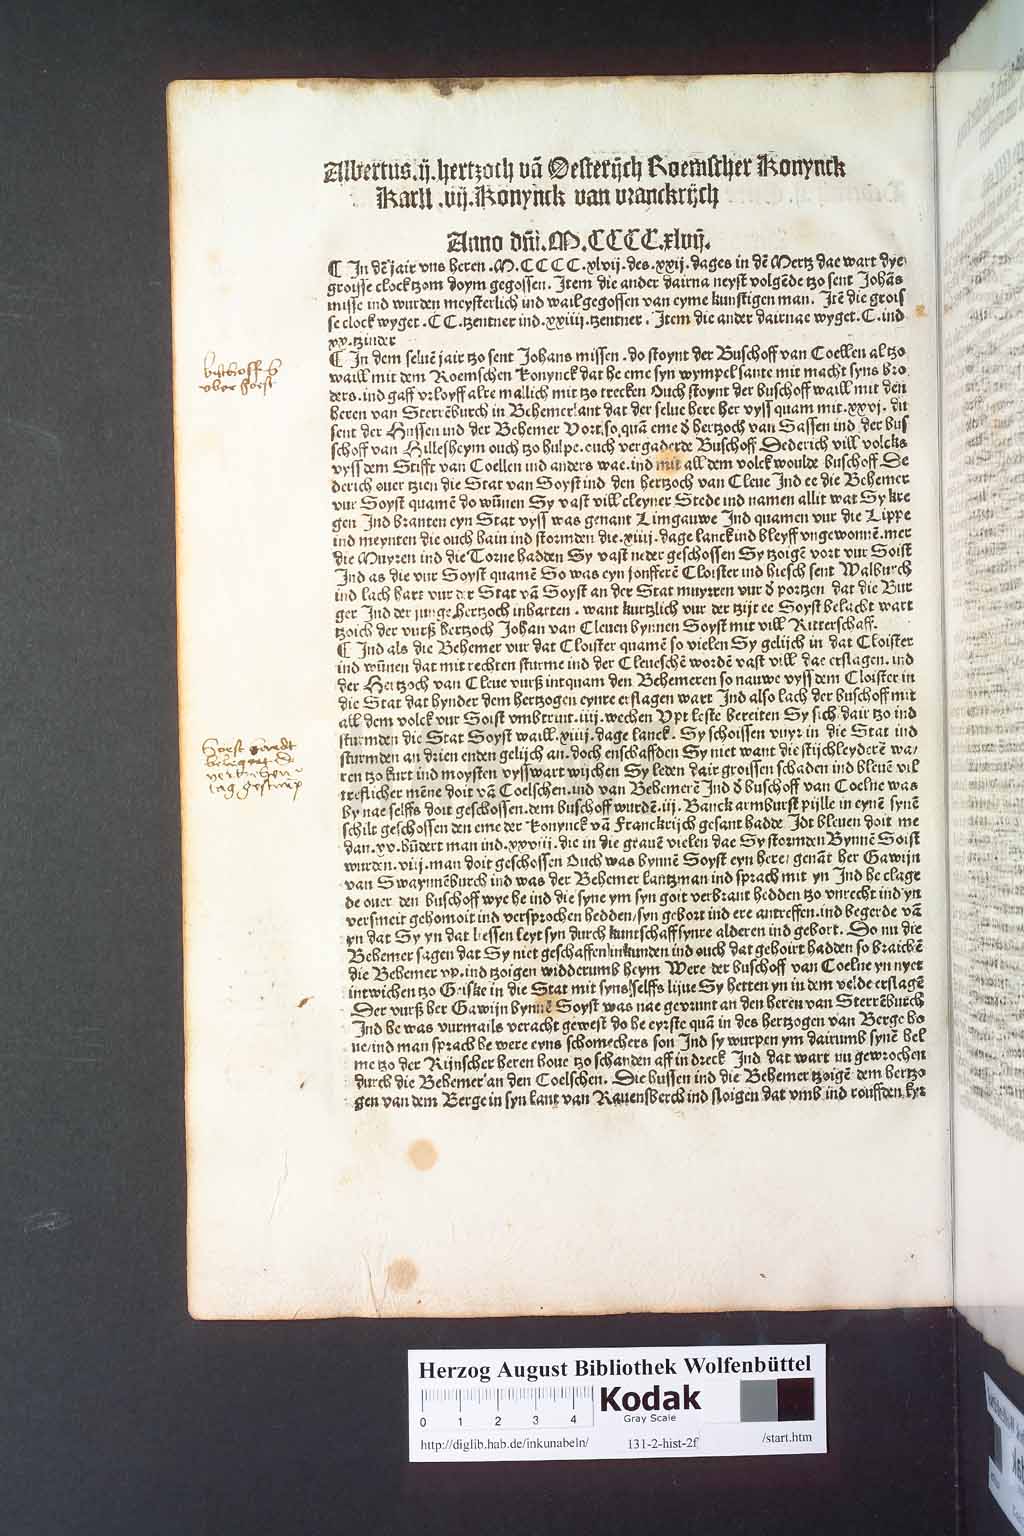 Albertus .ij. hertzoch vā Oesterijch Roemscher Konynck
Karll .vij. Konynck van vranckrijch
Anno dñi .M.CCCC.xlvij.
¶ In dē jair vns heren .M.CCCC.xlvij. des .xxij. dages in dē Mertz dae wart dye
groisse clock tzom doym gegossen. Item die ander dairna neyst volgēde tzo sent Johās
misse ind wurden meysterlich ind wail gegossen van eyme kunstigen man. Itē die grois
se clock wyget .CC. tzentner ind .xxiiij. tzentner. Item die ander dairnae wyget .C. ind
xx. tzinder
¶ In dem seluē jair tzo sent Johans missen . do stoynt der Buschoff van Coellen al tzo
waill mit dem Roemschen Konynck dat he eme syn wympel sante mit macht syns bro
ders . ind gaff vrloyff alre mallich mit tzo trecken Ouch stoynt der buschoff waill mit den
heren van Sterrēburch in Behemerlant dat der selue here her vyss quam mit .xxvj. du
sent der Hussen ind der Behemer Vort so quā eme d hertzoch van Sassen ind der bus
schoff van Hillesheym ouch tzo hulpe . ouch vergaderde Buschoff Dederich vill volcks
vyss dem Stifft van Coellen ind anders wae . ind mit all dem volck woulde buschoff De
derich ouer tzien die Stat van Soyst ind den hertzoch van Cleue Ind ee die Behemer
vur Soyst quamē do wūnen Sy vast vill cleyner Stede ind namen allit wat Sy kre
gen Ind branten eyn Stat vyss was genant Limgauwe Ind quamen vur die Lippe
ind meynten die ouch hain ind stormden die .xiiij. dage lanck ind bleyff vngewonnē . mer
die Muyren ind die Torne hadden Sy vast neder geschossen Sy tzoigē vort vur Soist
Ind as die vur Soyst quamē So was eyn jonfferē Cloister ind hiesch sent Walburch
ind lach hart vur der Stat vā Soyst an der Stat muyrren vur d portzen dat die Bur
ger Ind der junge hertzoch inbarten . want kurtzlich vur der tzijt ee Soyst belacht wart
tzoich der vurß hertzoch Johan van Cleuen bynnen Soyst mit vill Ritterschaff.
¶ Ind als die Behemer vur dat Cloister quamē so vielen Sy gelijch in dat Cloister
ind wūnen dat mit rechten sturme ind der Cleueschē wordē vast vill dae erslagen . ind
der Hertzoch van Cleue vurß intquam den Behemeren so nauwe vyss dem Cloister in
die Stat dat hynder dem hertzogen eynre erslagen wart Ind also lach der buschoff mit
all dem volck vur Soist vmbtrint .iiij. wechen Vpt leste bereiten Sy sich dair tzo ind
sturmden die Stat Soyst waill .xiiij. dage lanck . Sy schoissen vuyr in die Stat ind
sturmden an drien enden gelijch an . doch enschaffden Sy niet want die stijchleyderē wa/
ren tzo kurt ind moysten vysswart wijchen Sy leden dair groissen schaden ind bleuē vil
treflicher mēne doit vā Coelschen . ind van Behemerē Ind d buschoff van Coelne was
by nae selffs doit geschossen . dem buschoff wurdē .iij. Banck armburst pijlle in eynē synē
schilt geschossen den eme der Konynck vā Franckrijch gesant hadde Idt bleuen doit me
dan .xv. hūdert man ind .xxviij. die in die grauē vielen dae Sy stormden Bynnē Soist
wurden .viij. man doit geschossen Ouch was bynnē Soyst eyn here/ genāt her Gawijn
van Swaynnēburch ind was der Behemer lantzman ind sprach mit yn Ind he clage
de ouer den buschoff wye he ind die syne ym syn goit verbrant hedden tzo vnrecht ind yn
versmeit gehomoit ind versprochen hedden/ syn gebort ind ere antreffen . ind begerde vā
yn dat Sy yn dat bessen leyt syn durch kuntschaff synre alderen ind gebort. Do nu die
Behemer sagen dat Sy niet geschaffen inkunden ind ouch dat gehoirt hadden so braichē
die Behemer vp . ind tzoigen widderumb heym Were der buschoff van Coelne yn nyet
intwichen tzo Geiske in die Stat mit syns selffs lijue Sy hetten yn in dem velde erslagē
Der vurß her Gawijn bynnē Soyst was nae gevrunt an den heren van Sterrēburch
Ind he was vurmails veracht gewest do he eyrste quā in des hertzogen van Berge ho
ue/ ind man sprach he were eyns schomechers son Ind sy wurpen ym dairumb synē hel
me tzo der Rijnscher heren houe tzo schanden aff in dreck Ind dat wart nu gewrochen
durch die Behemer an den Coelschen. Die hussen ind die Behemer tzoigē dem hertzo
gen van dem Berge in syn lant van Rauensberch ind sloigen dat vmb ind rouffden kyr
Soest
Herzog August Bibliothek Wolfenbüttel
0 1 2 3 4
Kodak
Gray Scale
http://diglib.hab.de/inkunabeln/ 131-2-hist-2f /start.htm